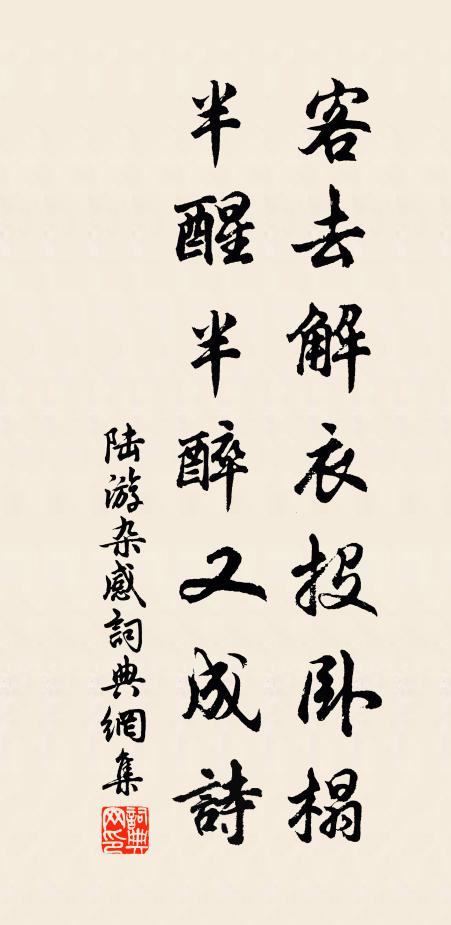 客去解衣投卧榻
半醒半醉又成詩
陆游杂感詞典網集
詞典网印